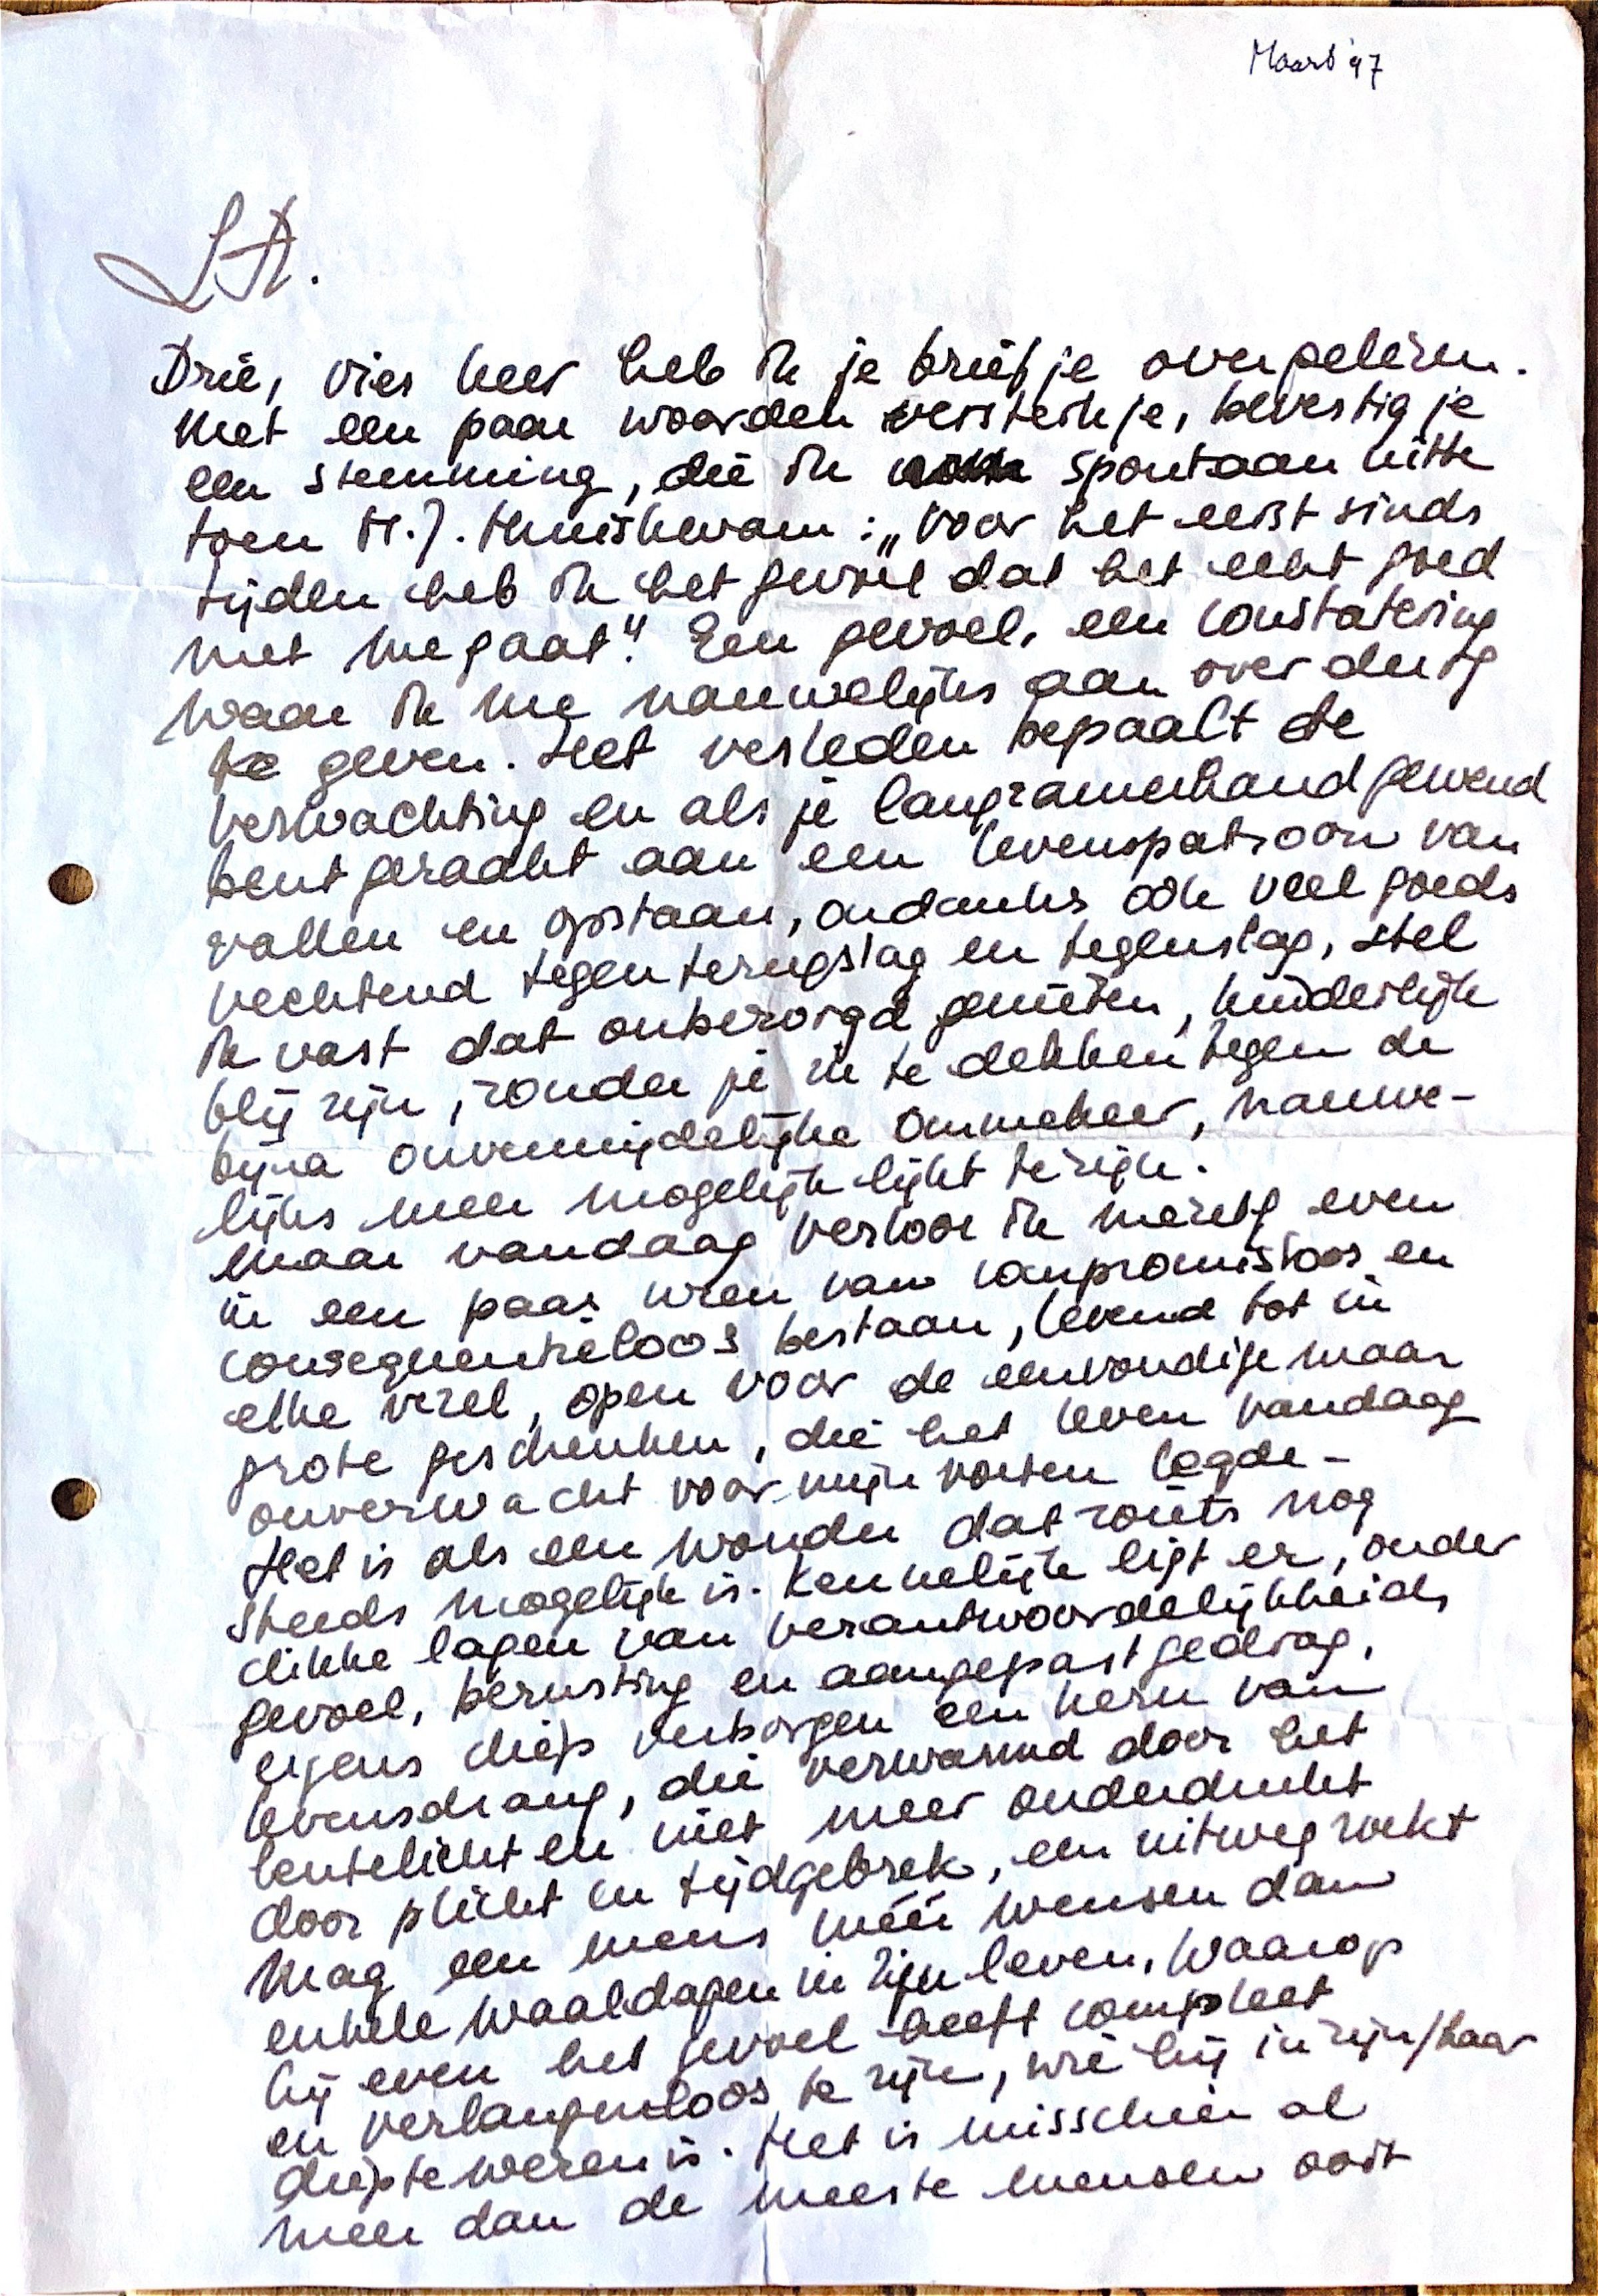 Maart '97
LA.
Drie, vier keer heb ik je briefje overgelezen.
Met een paar woorden versterk je, bevestig je
een stemming, die ik spontaan uitte
toen H.J. thuiskwam: „Voor het eerst sinds
tijden heb ik het gevoel dat het echt goed
met me gaat". Een gevoel, een constatering
waar ik me nauwelijks aan over durf
te geven. Het verleden bepaalt de
verwachting en als je langzamerhand gewend
bent geraakt aan een levenspatroon van
vallen en opstaan, ondanks ook veel goeds
vechtend tegen terugslag en tegenslag, stel
ik vast dat onbezorgd genieten, kinderlijk
blij zijn, zonder je in te dekken tegen de
bijna onvermijdelijke ommekeer, nauwe-
lijks meer mogelijk lijkt te zijn.
Maar vandaag verloor ik mezelf even
in een paar uren van compromisloos en
consequentieloos bestaan, levend tot in
elke vezel, open voor de eenvoudige maar
grote geschenken, die het leven vandaag
onverwacht voor mijn voeten legde-
Het is als een wonder dat zoiets nog
steeds mogelijk is. Kennelijk ligt er, onder
dikke lagen van verantwoordelijkheids
gevoel, berusting en aangepast gedrag,
ergens diep verborgen een kern van
levensdrang, die verwarmd door het
lentelicht en niet meer onderdrukt
door plicht en tijdgebrek, een uitweg zoekt
Mag een mens méér wensen dan
enkele Waaldagen in zijn leven, waarop
hij even het gevoel heeft compleet
en verlangenloos te zijn, wie hij in zijn/haar
diepste wezen is. Het is misschien al
meer dan de meeste mensen ooit